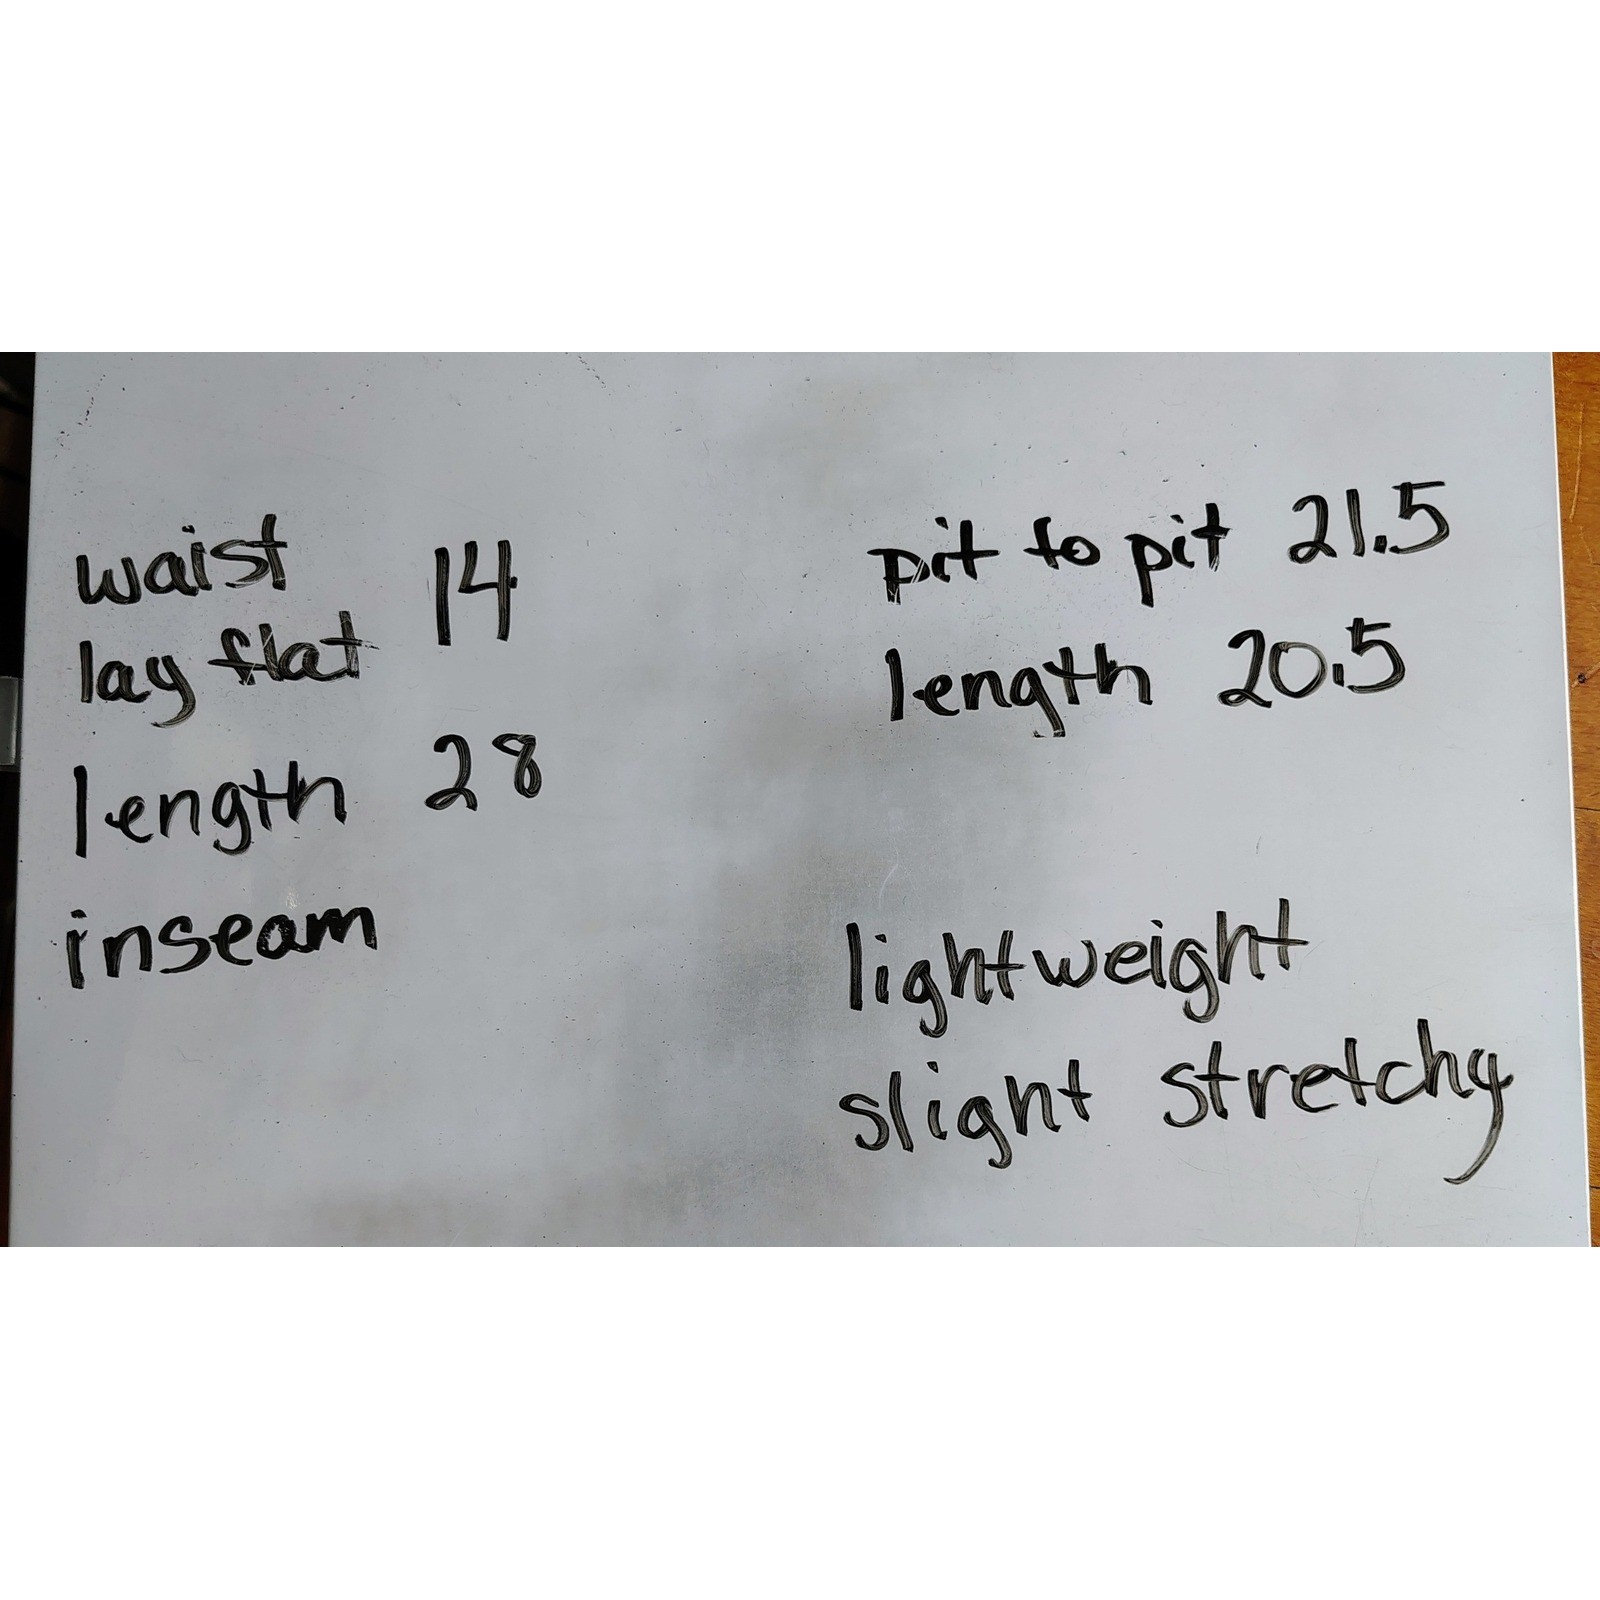 waist
lay flat 14
length 28
inseam
pit to pit 21.5
length 20.5
lightweight
slight stretchy